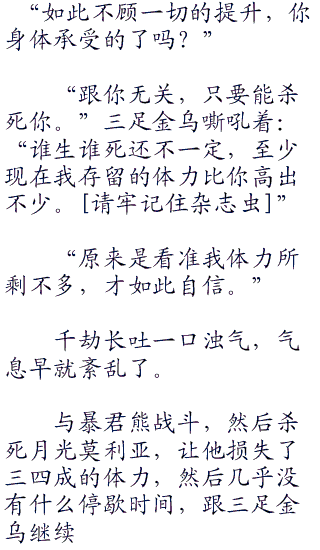 “如此不顾一切的提升，你
身体承受的了吗？”
“跟你无关，只要能杀
死你。”三足金乌嘶吼着：
“谁生谁死还不一定，至少
现在我存留的体力比你高出
不少。[请牢记住杂志虫]”
“原来是看准我体力所
剩不多，才如此自信。”
千劫长吐一口浊气，气
息早就紊乱了。
与暴君熊战斗，然后杀
死月光莫利亚，让他损失了
三四成的体力，然后几乎没
有什么停歇时间，跟三足金
乌继续